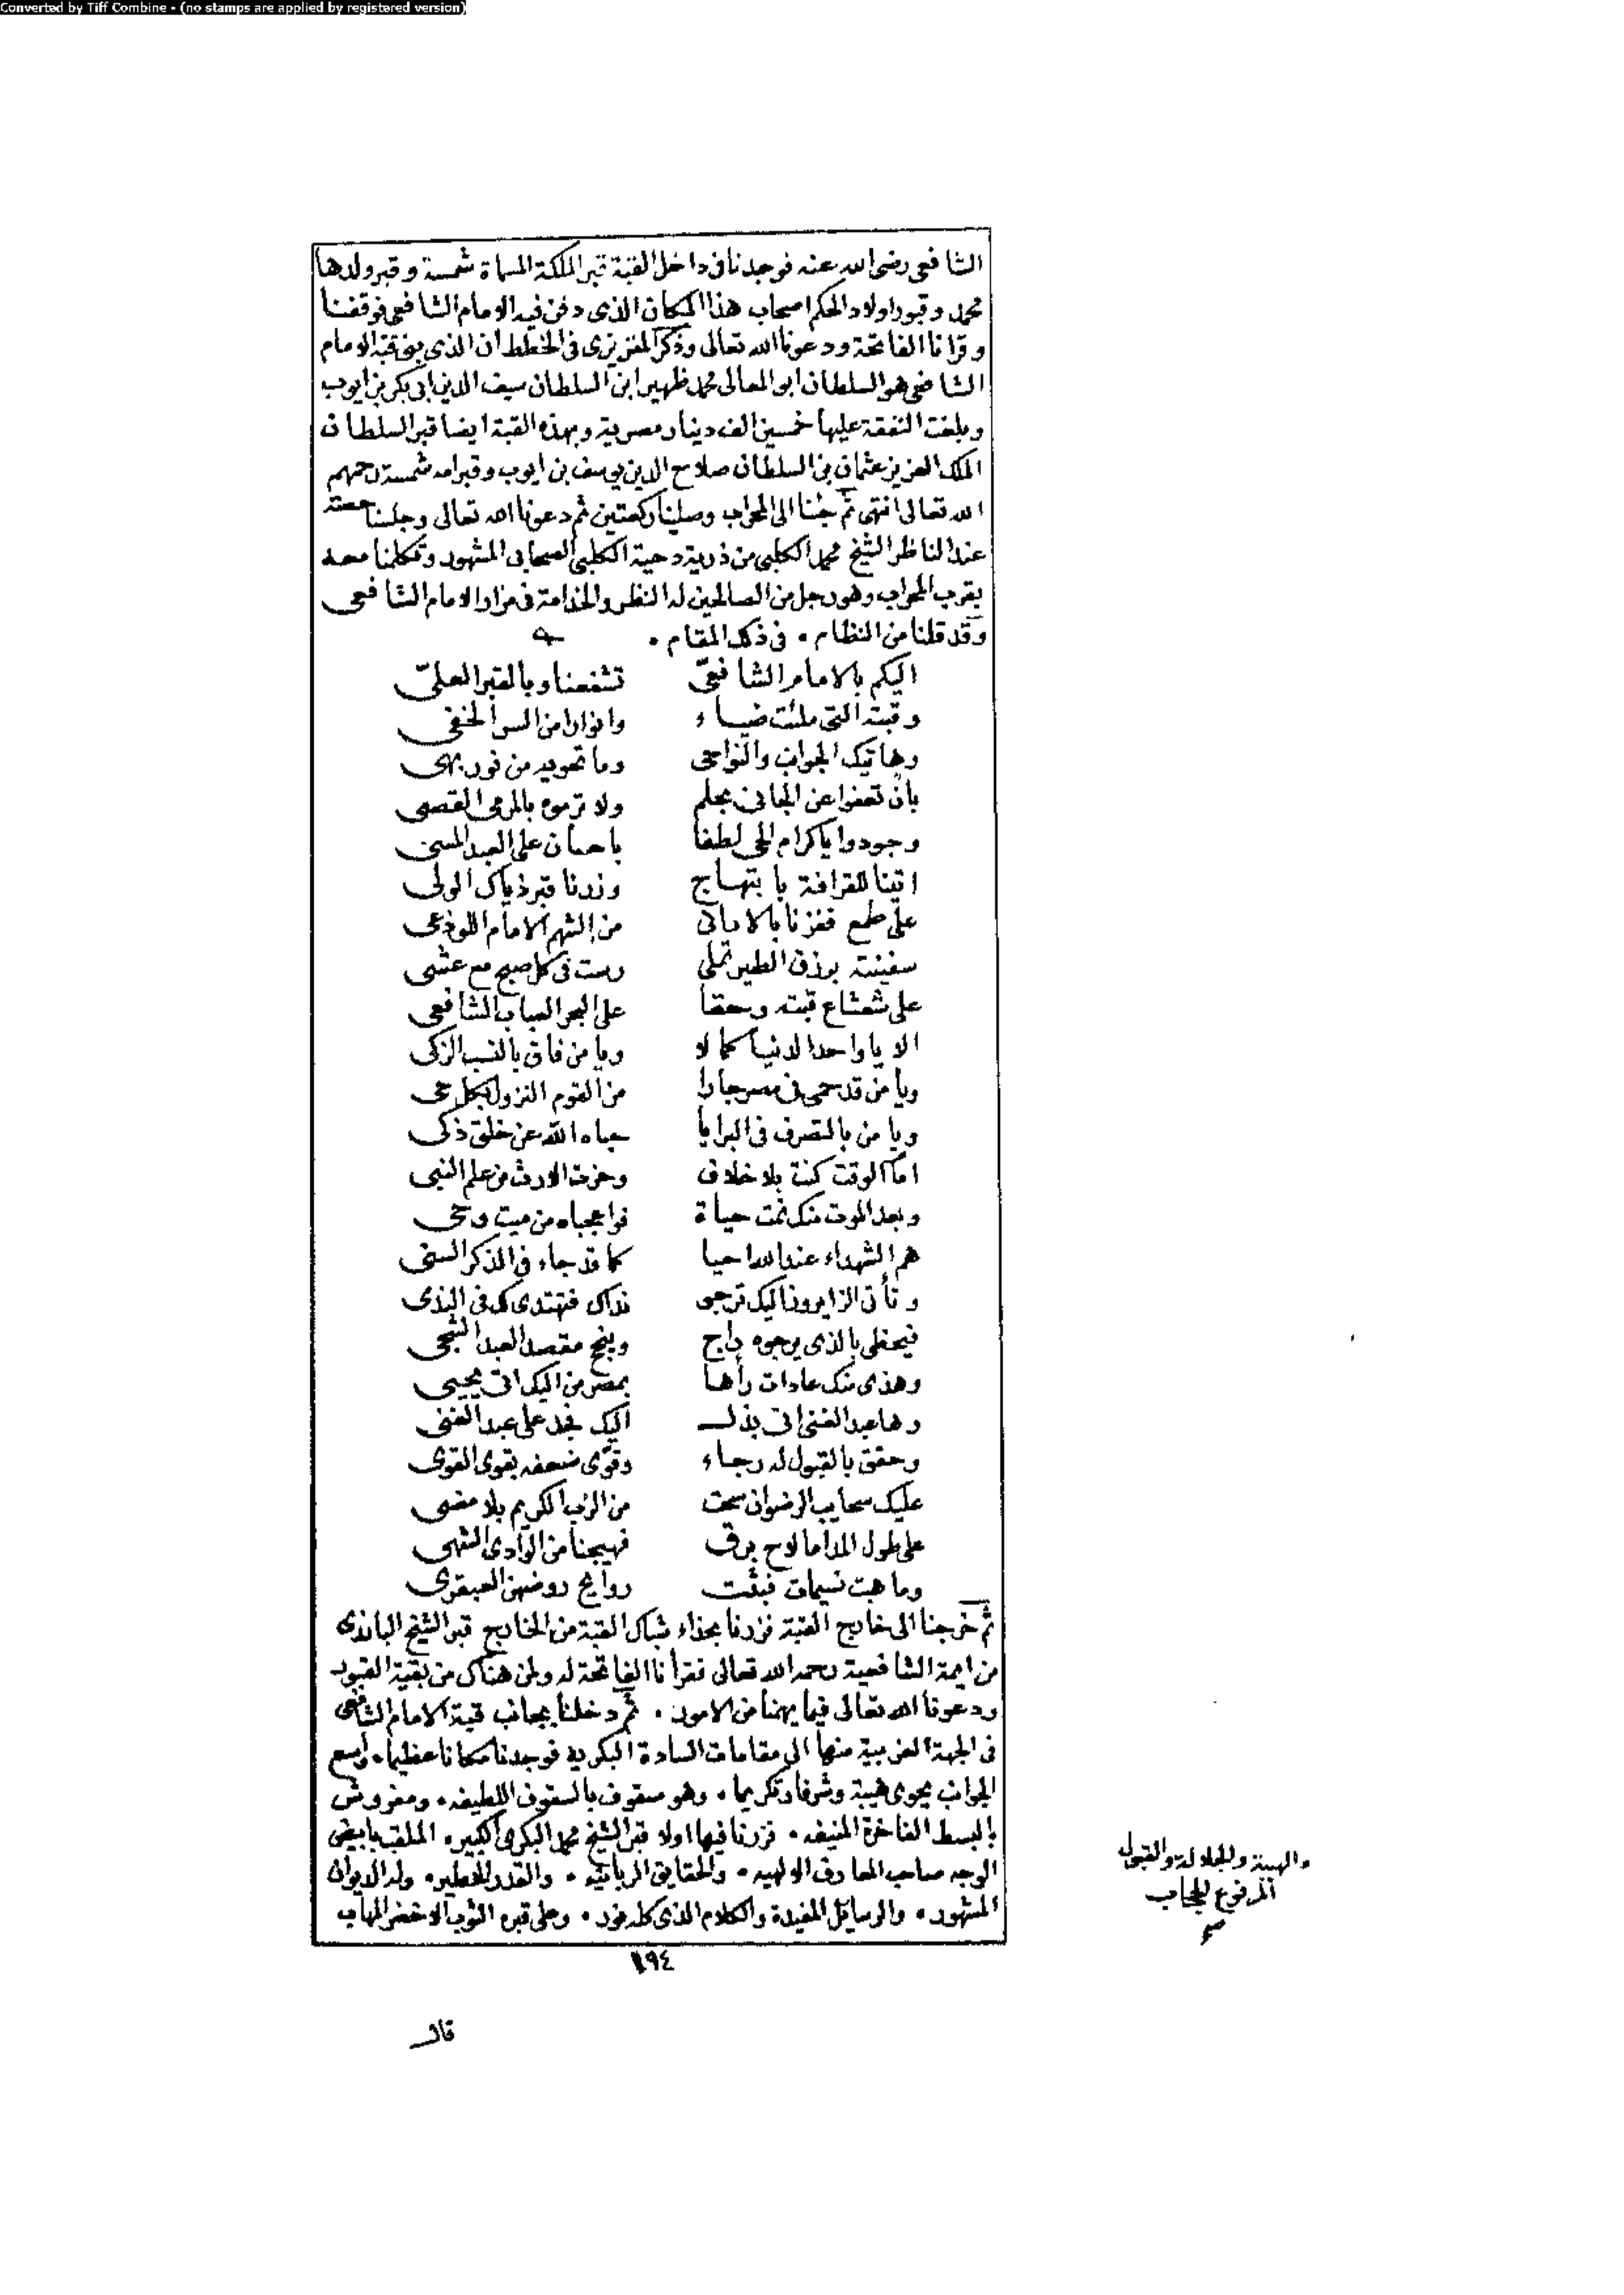 Converted by Tiff Combine - (no stamps are applied by registered version)
الشافعي رضى الله عنه فوجدنا فى داخل القبة قبر الملكة المسماة شمسة وقبر ولدها
محمد وقبور اولاد الحكم اصحاب هذا المكان الذى دفن فيه الامام الشافعى فوقفنا
وقرانا الفاتحة ودعونا الله تعالى وذكر المقريزى فى الخطط ان الذى بنى قبة الامام
الشافعى هو السلطان ابو المعالى محمد ظهير ابن السلطان سيف الدين ابى بكر بن ايوب
وبلغت النفقة عليها خمسين الف دينار مصرية وبهذه القبة ايضا قبر السلطان
الملك العزيز عثمان بن السلطان صلاح الدين يوسف بن ايوب وقبر امه شمسة رحمهم
الله تعالى انتهى ثم جئنا الى المحراب وصلينا ركعتين ثم دعونا الله تعالى وجلسنا حصة
عند الناظر الشيخ محمد الكلبى من ذرية دحية الكلبى الصحابى المشهور وتكلمنا معه
بقرب المحراب وهو رجل من الصالحين له النظر والخدامة فى مزار الامام الشافعى
وقد قلنا من النظام . فى ذلك المقام .
اليكم بالامام الشافعىّ تشفعنا وبالقبر العلىّ
وقبته التى ملئت ضياء وانوارا من السر الخفى
وهاتيك الجوانب والنواحى وما تحويه من نور بهى
بان تعفوا عن الجانى بحلم ولا ترموه بالمرمى القصى
وجودوا ياكرام الحى لطفا باحسان على العبد المسى
اتينا للقرافة بابتهاج وزرنا قبر ذياك الولى
على طمع ففزنا بالامانى من الشهم الامام اللوذعى
سفينته برزق الطير تملى رست فى كل صبح مع عشى
على شعشاع قبته وحقا على البحر العباب الشافعى
الا ياواحد الدنيا كمالا ويا من فاق بالنسب الزكى
ويا من قد حمى فى مصر جارا من القوم النزول بكل حى
ويا من بالتصرف فى البرايا حباه الله عن خلق ذكى
امام الوقت كنت بلا خلاف وحزت الارث من علم النبى
وبعد الموت منك نمت حياة فواعجباه من ميت وحى
هم الشهداء عند الله احيا كما قد جاء فى الذكر السنى
وتأتى الزايرون اليك ترجى نداك فتهتدى بك فى الندى
فيحظى بالذى يرجوه راج وينجح مقصد العبد الشجى
وهذى منك عادات رأها بمصر من اليك اتى يحيى
وها عبد الغنى اتى بذل اليك فجد على عبد الغنى
وحقق بالقبول له رجاء وقوّى ضعفه بقوى القوى
عليك سحايب الرضوان سحت من الرب الكريم بلا مضى
على طول المدا ما لاح برق فهيجنا من الوادى الشهى
وما هبت نسيمات فبثت روايح روضهن العبقرى
ثم خرجنا الى خارج القبة فزرنا بحذاء شباك القبة من الخارج قبر الشيخ
من ايمة الشافعية رحمه الله تعالى فقرأنا الفاتحة له ولمن هناك من بقية القبور
ودعونا الله تعالى فيما يهمنا من الامور . ثم دخلنا بجانب قبة الامام الشافعى
فى الجهة الغربية منها الى مقامات السادة البكريه فوجدنا مكانا عظيما . واسع
الجوانب يحوى هيبة وشرفا وتكريما . وهو مسقوف بالسقوف اللطيفه . ومفروش
بالبسط الفاخرة المنيفه . فزرنا فيها اولا قبر الشيخ محمد البكرى الكبير . الملقب بابيض
الوجه صاحب المعارف الالهيه . والحقايق الربانيه . والقدر الخطير . وله الديوان
المشهور . والرسايل المفيدة والكلام الذى كله نور . وعلى قبره الثوب الاخضر المهاب
والهيبة والجلالة والقبول
المرفوع الحجاب
صح
١٩٤
قال